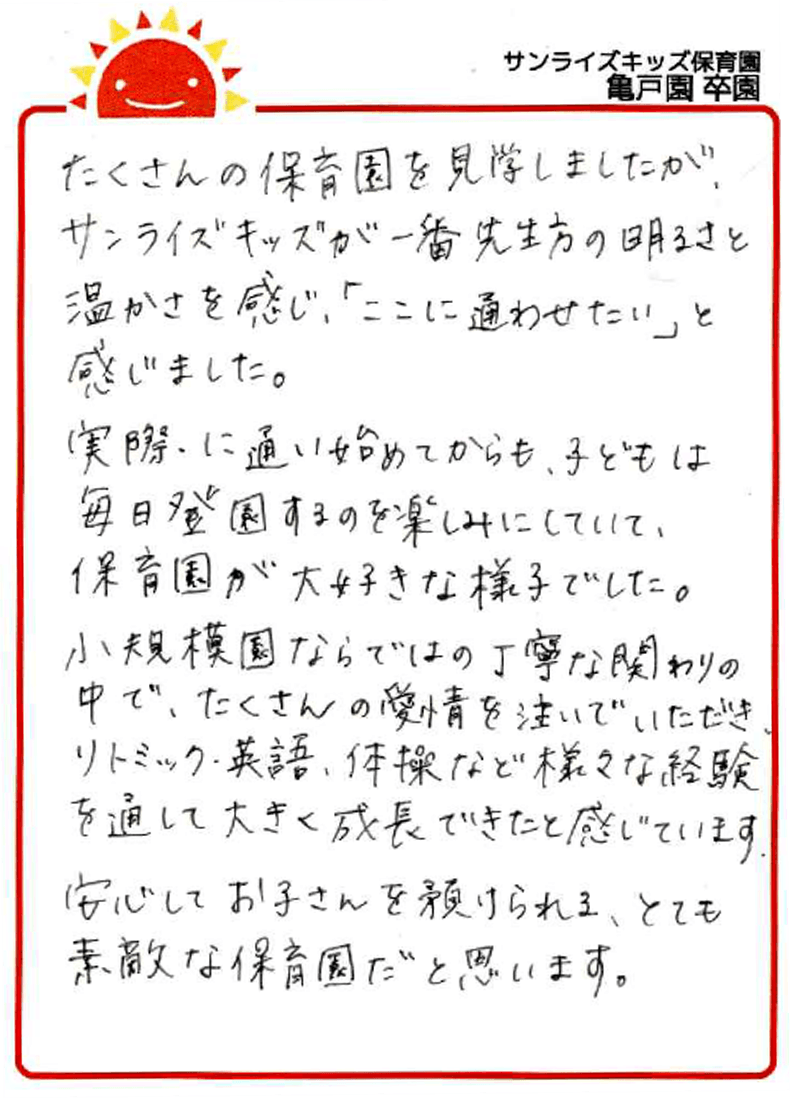 サンライズキッズ保育園
亀戸園 卒園
たくさんの保育園を見学しましたが、
サンライズキッズが一番先生方の明るさと
温かさを感じ、「ここに通わせたい」と
感じました。
実際に通い始めてからも、子どもは
毎日登園するのを楽しみにしていて、
保育園が大好きな様子でした。
小規模園ならではの丁寧な関わりの
中で、たくさんの愛情を注いでいただき、
リトミック・英語、体操など様々な経験
を通して大きく成長できたと感じています。
安心してお子さんを預けられる、とても
素敵な保育園だと思います。